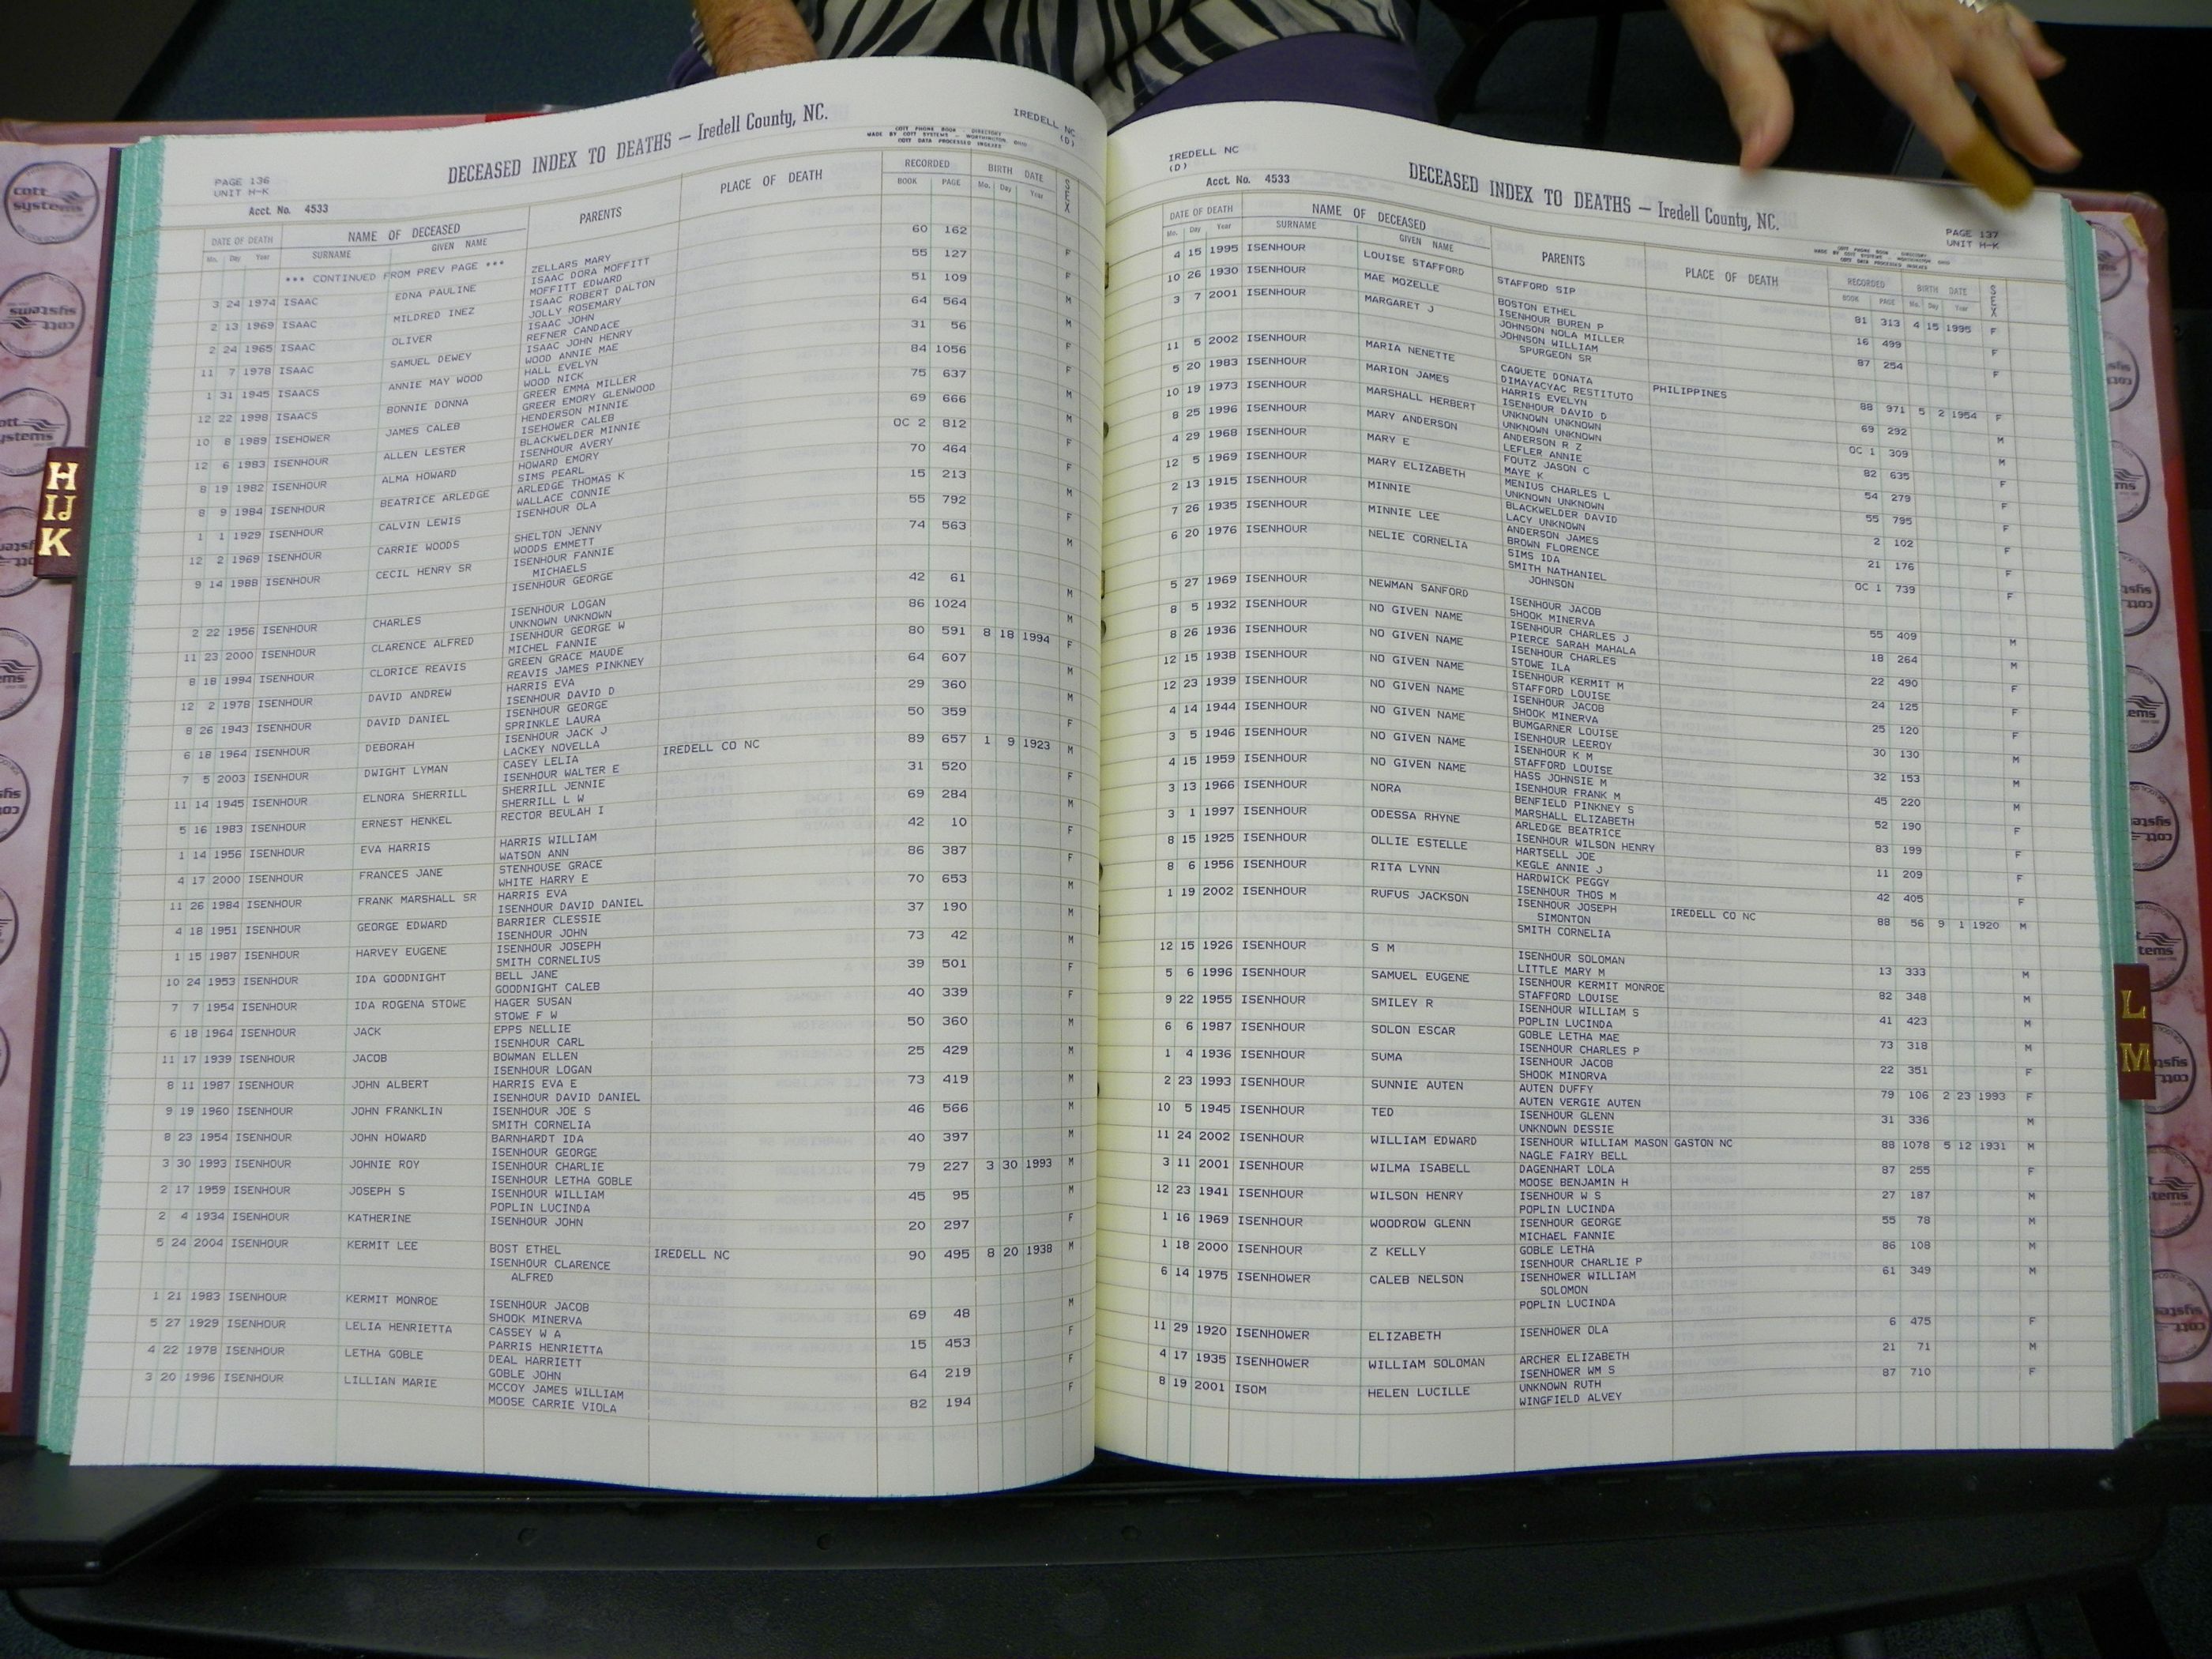 PAGE 136
UNIT H-K
Acct. No. 4533
DECEASED INDEX TO DEATHS — Iredell County, NC.
COTT PHONE BOOK - DIRECTORY
MADE BY COTT SYSTEMS - WORTHINGTON OHIO
COTT DATA PROCESSED INDEXES
IREDELL NC
(D)
DATE OF DEATH NAME OF DECEASED PARENTS PLACE OF DEATH RECORDED BIRTH DATE SEX
Mo. Day Year SURNAME GIVEN NAME BOOK PAGE Mo. Day Year
*** CONTINUED FROM PREV PAGE *** ZELLARS MARY
3 24 1974 ISAAC EDNA PAULINE ISAAC DORA MOFFITT 60 162 F
MOFFITT EDWARD
2 13 1969 ISAAC MILDRED INEZ ISAAC ROBERT DALTON 55 127 F
JOLLY ROSEMARY
2 24 1965 ISAAC OLIVER ISAAC JOHN 51 109 M
REFNER CANDACE
11 7 1978 ISAAC SAMUEL DEWEY ISAAC JOHN HENRY 64 564 M
WOOD ANNIE MAE
1 31 1945 ISAACS ANNIE MAY WOOD HALL EVELYN 31 56 F
WOOD NICK
12 22 1998 ISAACS BONNIE DONNA GREER EMMA MILLER 84 1056 F
GREER EMORY GLENWOOD
10 8 1989 ISEHOWER JAMES CALEB HENDERSON MINNIE 75 637 M
ISEHOWER CALEB
12 6 1983 ISENHOUR ALLEN LESTER BLACKWELDER MINNIE 69 666 M
ISENHOUR AVERY
8 19 1982 ISENHOUR ALMA HOWARD HOWARD EMORY OC 2 812 F
SIMS PEARL
8 9 1984 ISENHOUR BEATRICE ARLEDGE ARLEDGE THOMAS K 70 464 F
WALLACE CONNIE
1 1 1929 ISENHOUR CALVIN LEWIS ISENHOUR OLA 15 213 M
12 2 1969 ISENHOUR CARRIE WOODS SHELTON JENNY 55 792 F
WOODS EMMETT
9 14 1988 ISENHOUR CECIL HENRY SR ISENHOUR FANNIE 74 563 M
MICHAELS
ISENHOUR GEORGE
2 22 1956 ISENHOUR CHARLES ISENHOUR LOGAN 42 61 M
UNKNOWN UNKNOWN
11 23 2000 ISENHOUR CLARENCE ALFRED ISENHOUR GEORGE W 86 1024 M
MICHEL FANNIE
8 18 1994 ISENHOUR CLORICE REAVIS GREEN GRACE MAUDE 80 591 8 18 1994 F
REAVIS JAMES PINKNEY
12 2 1978 ISENHOUR DAVID ANDREW HARRIS EVA 64 607 M
ISENHOUR DAVID D
8 26 1943 ISENHOUR DAVID DANIEL ISENHOUR GEORGE 29 360 M
SPRINKLE LAURA
6 18 1964 ISENHOUR DEBORAH ISENHOUR JACK J 50 359 F
LACKEY NOVELLA
7 5 2003 ISENHOUR DWIGHT LYMAN CASEY LELIA IREDELL CO NC 89 657 1 9 1923 M
ISENHOUR WALTER E
11 14 1945 ISENHOUR ELNORA SHERRILL SHERRILL JENNIE 31 520 F
SHERRILL L W
5 16 1983 ISENHOUR ERNEST HENKEL RECTOR BEULAH I 69 284 M
1 14 1956 ISENHOUR EVA HARRIS HARRIS WILLIAM 42 10 F
WATSON ANN
4 17 2000 ISENHOUR FRANCES JANE STENHOUSE GRACE 86 387 F
WHITE HARRY E
11 26 1984 ISENHOUR FRANK MARSHALL SR HARRIS EVA 70 653 M
ISENHOUR DAVID DANIEL
4 18 1951 ISENHOUR GEORGE EDWARD BARRIER CLESSIE 37 190 M
ISENHOUR JOHN
1 15 1987 ISENHOUR HARVEY EUGENE ISENHOUR JOSEPH 73 42 M
SMITH CORNELIUS
10 24 1953 ISENHOUR IDA GOODNIGHT BELL JANE 39 501 F
GOODNIGHT CALEB
7 7 1954 ISENHOUR IDA ROGENA STOWE HAGER SUSAN 40 339 F
STOWE F W
6 18 1964 ISENHOUR JACK EPPS NELLIE 50 360 M
ISENHOUR CARL
11 17 1939 ISENHOUR JACOB BOWMAN ELLEN 25 429 M
ISENHOUR LOGAN
8 11 1987 ISENHOUR JOHN ALBERT HARRIS EVA E 73 419 M
ISENHOUR DAVID DANIEL
9 19 1960 ISENHOUR JOHN FRANKLIN ISENHOUR JOE S 46 566 M
SMITH CORNELIA
8 23 1954 ISENHOUR JOHN HOWARD BARNHARDT IDA 40 397 M
ISENHOUR GEORGE
3 30 1993 ISENHOUR JOHNIE ROY ISENHOUR CHARLIE 79 227 3 30 1993 M
ISENHOUR LETHA GOBLE
2 17 1959 ISENHOUR JOSEPH S ISENHOUR WILLIAM 45 95 M
POPLIN LUCINDA
2 4 1934 ISENHOUR KATHERINE ISENHOUR JOHN 20 297 F
5 24 2004 ISENHOUR KERMIT LEE BOST ETHEL IREDELL NC 90 495 8 20 1938 M
ISENHOUR CLARENCE
ALFRED
1 21 1983 ISENHOUR KERMIT MONROE ISENHOUR JACOB 69 48 M
SHOOK MINERVA
5 27 1929 ISENHOUR LELIA HENRIETTA CASSEY W A 15 453 F
PARRIS HENRIETTA
4 22 1978 ISENHOUR LETHA GOBLE DEAL HARRIETT 64 219 F
GOBLE JOHN
3 20 1996 ISENHOUR LILLIAN MARIE MCCOY JAMES WILLIAM 82 194 F
MOOSE CARRIE VIOLA
IREDELL NC
(D)
Acct. No. 4533
DECEASED INDEX TO DEATHS — Iredell County, NC.
PAGE 137
UNIT H-K
COTT PHONE BOOK - DIRECTORY
MADE BY COTT SYSTEMS - WORTHINGTON OHIO
COTT DATA PROCESSED INDEXES
DATE OF DEATH NAME OF DECEASED PARENTS PLACE OF DEATH RECORDED BIRTH DATE SEX
Mo. Day Year SURNAME GIVEN NAME BOOK PAGE Mo. Day Year
4 15 1995 ISENHOUR LOUISE STAFFORD STAFFORD SIP 81 313 4 15 1995 F
10 26 1930 ISENHOUR MAE MOZELLE BOSTON ETHEL 16 499 F
ISENHOUR BUREN P
3 7 2001 ISENHOUR MARGARET J JOHNSON NOLA MILLER 87 254 F
JOHNSON WILLIAM
SPURGEON SR
11 5 2002 ISENHOUR MARIA NENETTE CAQUETE DONATA PHILIPPINES 88 971 5 2 1954 F
DIMAYACYAC RESTITUTO
5 20 1983 ISENHOUR MARION JAMES HARRIS EVELYN 69 292 M
ISENHOUR DAVID D
10 19 1973 ISENHOUR MARSHALL HERBERT UNKNOWN UNKNOWN OC 1 309 M
UNKNOWN UNKNOWN
8 25 1996 ISENHOUR MARY ANDERSON ANDERSON R Z 82 635 F
LEFLER ANNIE
4 29 1968 ISENHOUR MARY E FOUTZ JASON C 54 279 F
MAYE K
12 5 1969 ISENHOUR MARY ELIZABETH MENIUS CHARLES L 55 795 F
UNKNOWN UNKNOWN
2 13 1915 ISENHOUR MINNIE BLACKWELDER DAVID 2 102 F
LACY UNKNOWN
7 26 1935 ISENHOUR MINNIE LEE ANDERSON JAMES 21 176 F
BROWN FLORENCE
6 20 1976 ISENHOUR NELIE CORNELIA SIMS IDA OC 1 739 F
SMITH NATHANIEL
JOHNSON
5 27 1969 ISENHOUR NEWMAN SANFORD ISENHOUR JACOB 55 409 M
SHOOK MINERVA
8 5 1932 ISENHOUR NO GIVEN NAME ISENHOUR CHARLES J 18 264 M
PIERCE SARAH MAHALA
8 26 1936 ISENHOUR NO GIVEN NAME ISENHOUR CHARLES 22 490 F
STOWE ILA
12 15 1938 ISENHOUR NO GIVEN NAME ISENHOUR KERMIT M 24 125 F
STAFFORD LOUISE
12 23 1939 ISENHOUR NO GIVEN NAME ISENHOUR JACOB 25 120 F
SHOOK MINERVA
4 14 1944 ISENHOUR NO GIVEN NAME BUMGARNER LOUISE 30 130 M
ISENHOUR LEEROY
3 5 1946 ISENHOUR NO GIVEN NAME ISENHOUR K M 32 153 M
STAFFORD LOUISE
4 15 1959 ISENHOUR NO GIVEN NAME HASS JOHNSIE M 45 220 M
ISENHOUR FRANK M
3 13 1966 ISENHOUR NORA BENFIELD PINKNEY S 52 190 F
MARSHALL ELIZABETH
3 1 1997 ISENHOUR ODESSA RHYNE ARLEDGE BEATRICE 83 199 F
ISENHOUR WILSON HENRY
8 15 1925 ISENHOUR OLLIE ESTELLE HARTSELL JOE 11 209 F
KEGLE ANNIE J
8 6 1956 ISENHOUR RITA LYNN HARDWICK PEGGY 42 405 F
ISENHOUR THOS M
1 19 2002 ISENHOUR RUFUS JACKSON ISENHOUR JOSEPH IREDELL CO NC 88 56 9 1 1920 M
SIMONTON
SMITH CORNELIA
12 15 1926 ISENHOUR S M ISENHOUR SOLOMAN 13 333 M
LITTLE MARY M
5 6 1996 ISENHOUR SAMUEL EUGENE ISENHOUR KERMIT MONROE 82 348 M
STAFFORD LOUISE
9 22 1955 ISENHOUR SMILEY R ISENHOUR WILLIAM S 41 423 M
POPLIN LUCINDA
6 6 1987 ISENHOUR SOLON ESCAR GOBLE LETHA MAE 73 318 M
ISENHOUR CHARLES P
1 4 1936 ISENHOUR SUMA ISENHOUR JACOB 22 351 F
SHOOK MINORVA
2 23 1993 ISENHOUR SUNNIE AUTEN AUTEN DUFFY 79 106 2 23 1993 F
AUTEN VERGIE AUTEN
10 5 1945 ISENHOUR TED ISENHOUR GLENN 31 336 M
UNKNOWN DESSIE
11 24 2002 ISENHOUR WILLIAM EDWARD ISENHOUR WILLIAM MASON GASTON NC 88 1078 5 12 1931 M
NAGLE FAIRY BELL
3 11 2001 ISENHOUR WILMA ISABELL DAGENHART LOLA 87 255 F
MOOSE BENJAMIN H
12 23 1941 ISENHOUR WILSON HENRY ISENHOUR W S 27 187 M
POPLIN LUCINDA
1 16 1969 ISENHOUR WOODROW GLENN ISENHOUR GEORGE 55 78 M
MICHAEL FANNIE
1 18 2000 ISENHOUR Z KELLY GOBLE LETHA 86 108 M
ISENHOUR CHARLIE P
6 14 1975 ISENHOWER CALEB NELSON ISENHOWER WILLIAM 61 349 M
SOLOMON
POPLIN LUCINDA
11 29 1920 ISENHOWER ELIZABETH ISENHOWER OLA 6 475 F
4 17 1935 ISENHOWER WILLIAM SOLOMAN ARCHER ELIZABETH 21 71 M
ISENHOWER WM S
8 19 2001 ISOM HELEN LUCILLE UNKNOWN RUTH 87 710 F
WINGFIELD ALVEY
H
IJ
K
L
M
cott
systems